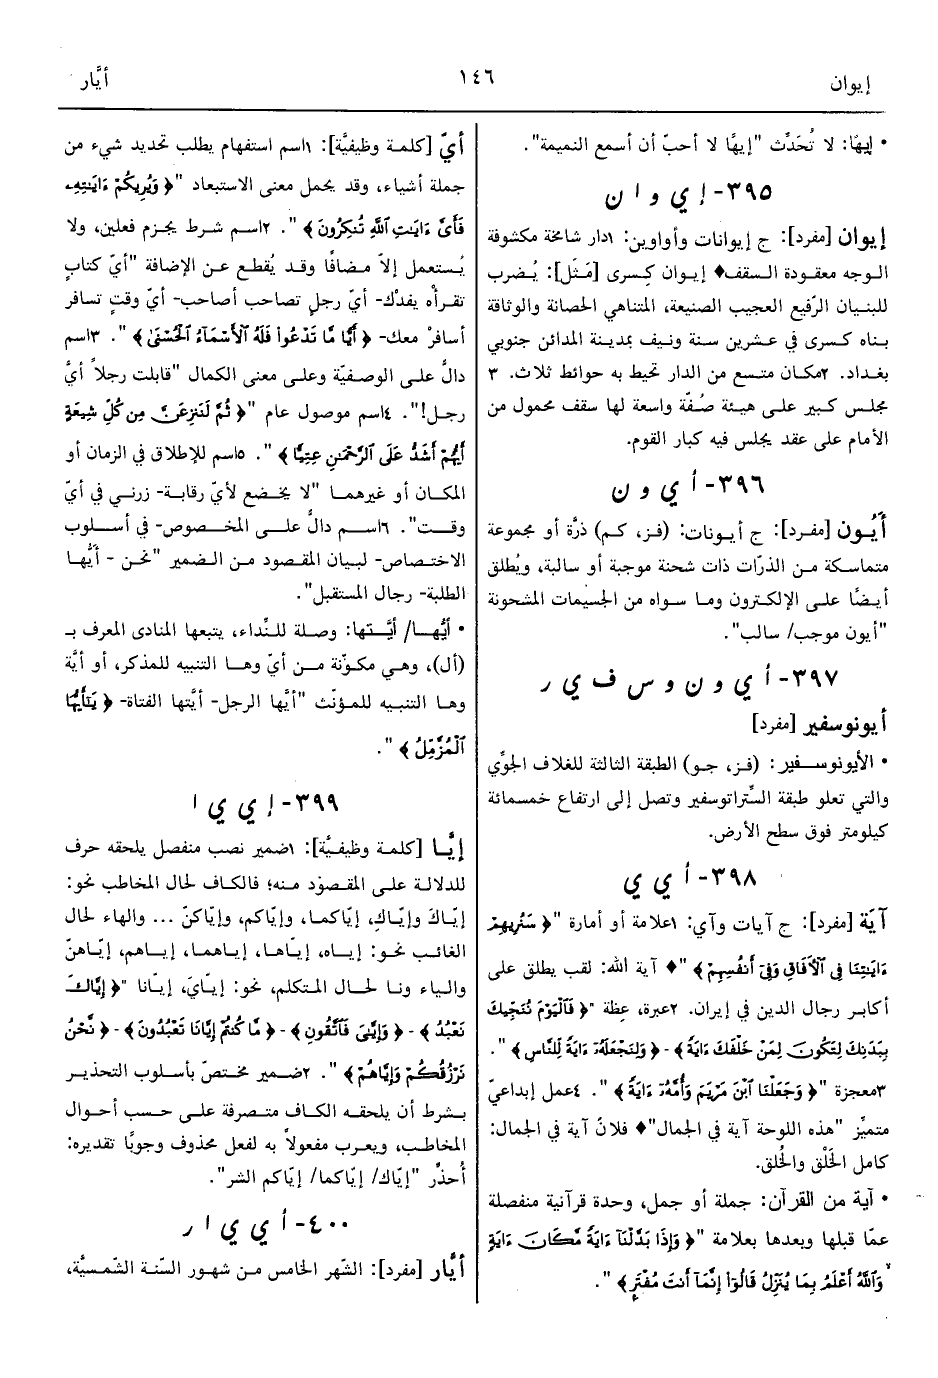 إيوان
١٤٦
أيَّار
• إيهًا: لا تُحَدِّث "إيهًا لا أحبّ أن أسمع النميمة".
٣٩٥- إ ي و ا ن
إيوان [مفرد]: ج إيوانات وأواوين: ١دار شامخة مكشوفة
الوجه معقودة السقف♦ إيوان كِسرى [مَثَل]: يُضرب
للبنيان الرّفيع العجيب الصنيعة، المتناهي الحصانة والوثاقة
بناه كسرى في عشرين سنة ونيف بمدينة المدائن جنوبي
بغداد. ٢مكان متسع من الدار تحيط به حوائط ثلاث. ٣
مجلس كبير على هيئة صُفّة واسعة لها سقف محمول من
الأمام على عقد يجلس فيه كبار القوم.
٣٩٦- أ ي و ن
أيُون [مفرد]: ج أيونات: (فز، كم) ذرَّة أو مجموعة
متماسكة من الذرّات ذات شحنة موجبة أو سالبة، ويُطلق
أيضًا على الإلكترون وما سواه من الجسيمات المشحونة
"أيون موجب/ سالب".
٣٩٧- أ ي و ن و س ف ي ر
أيونوسفير [مفرد]
• الأيونوسفير: (فز، جو) الطبقة الثالثة للغلاف الجوِّي
والتي تعلو طبقة السِّتراتوسفير وتصل إلى ارتفاع خمسمائة
كيلومتر فوق سطح الأرض.
٣٩٨- أ ي ي
آيَة [مفرد]: ج آيات وآي: ١علامة أو أمارة "﴿ سَنُرِيهِمْ
ءَايَٰتِنَا فِى ٱلْأٓفَاقِ وَفِىٓ أَنفُسِهِمْ ﴾ "♦ آية الله: لقب يطلق على
أكابر رجال الدين في إيران. ٢عبرة، عِظة "﴿ فَٱلْيَوْمَ نُنَجِّيكَ
بِبَدَنِكَ لِتَكُونَ لِمَنْ خَلْفَكَ ءَايَةً ﴾ - ﴿ وَلِنَجْعَلَهُۥٓ ءَايَةً لِّلنَّاسِ ﴾ ".
٣معجزة "﴿ وَجَعَلْنَا ٱبْنَ مَرْيَمَ وَأُمَّهُۥٓ ءَايَةً ﴾ ". ٤عمل إبداعيّ
متميِّز "هذه اللوحة آية في الجمال"♦ فلانٌ آية في الجمال:
كامل الخَلْق والخُلق.
• آية من القرآن: جملة أو جمل، وحدة قرآنية منفصلة
عمّا قبلها وبعدها بعلامة "﴿ وَإِذَا بَدَّلْنَآ ءَايَةً مَّكَانَ ءَايَةٍ
وَٱللَّهُ أَعْلَمُ بِمَا يُنَزِّلُ قَالُوٓا۟ إِنَّمَآ أَنتَ مُفْتَرٍ ﴾ ".
أيّ [كلمة وظيفيَّة]: ١اسم استفهام يطلب تحديد شيء من
جملة أشياء، وقد يحمل معنى الاستبعاد "﴿ وَيُرِيكُمْ ءَايَٰتِهِۦ
فَأَىَّ ءَايَٰتِ ٱللَّهِ تُنكِرُونَ ﴾ ". ٢اسم شرط يجزم فعلين، ولا
يُستعمل إلاّ مضافًا وقد يُقطع عن الإضافة "أيّ كتابٍ
تقرأْه يفدْك- أيّ رجلٍ تصاحب أصاحب- أيّ وقتٍ تسافر
أسافرْ معك- ﴿ أَيًّا مَّا تَدْعُوا۟ فَلَهُ ٱلْأَسْمَآءُ ٱلْحُسْنَىٰ ﴾ ". ٣اسم
دالُّ على الوصفيّة وعلى معنى الكمال "قابلت رجلاً أيُّ
رجل!". ٤اسم موصول عام "﴿ ثُمَّ لَنَنزِعَنَّ مِن كُلِّ شِيعَةٍ
أَيُّهُمْ أَشَدُّ عَلَى ٱلرَّحْمَٰنِ عِتِيًّا ﴾ ". ٥اسم للإطلاق في الزمان أو
المكان أو غيرهما "لا يخضع لأيّ رقابة- زرني في أيّ
وقت". ٦اسم دالُّ على المخصوص- في أسلوب
الاختصاص- لبيان المقصود من الضمير "نحن - أيُّها
الطلبة- رجال المستقبل".
• أيُّها/ أيَّتها: وصلة للنِّداء، يتبعها المنادى المعرف بـ
(أل)، وهي مكوّنة من أيّ وها التنبيه للمذكر، أو أيّة
وها التنبيه للمؤنّث "أيُّها الرجل- أيَّتها الفتاة- ﴿ يَٰٓأَيُّهَا
ٱلْمُزَّمِّلُ ﴾ ".
٣٩٩- إ ي ي ا
إيَّا [كلمة وظيفيَّة]: ١ضمير نصب منفصل يلحقه حرف
للدلالة على المقصود منه؛ فالكاف لحال المخاطب نحو:
إيّاكَ وإيّاكِ، إيّاكما، وإيّاكم، وإيّاكنّ ... والهاء لحال
الغائب نحو: إياه، إيّاها، إياهما، إياهم، إيّاهنّ
والياء ونا لحال المتكلم، نحو: إيّايَ، إيّانا "﴿ إِيَّاكَ
نَعْبُدُ ﴾ - ﴿ وَإِيَّٰىَ فَٱتَّقُونِ ﴾ - ﴿ مَّا كُنتُمْ إِيَّانَا تَعْبُدُونَ ﴾ - ﴿ نَّحْنُ
نَرْزُقُكُمْ وَإِيَّاهُمْ ﴾ ". ٢ضمير مختصّ بأسلوب التحذير
بشرط أن يلحقه الكاف متصرفة على حسب أحوال
المخاطب، ويعرب مفعولاً به لفعل محذوف وجوبًا تقديره:
أُحذِّر "إيّاك/ إيّاكما/ إيّاكم الشر".
٤٠٠- أ ي ي ا ر
أيَّار [مفرد]: الشّهر الخامس من شهور السّنة الشّمسيَّة،